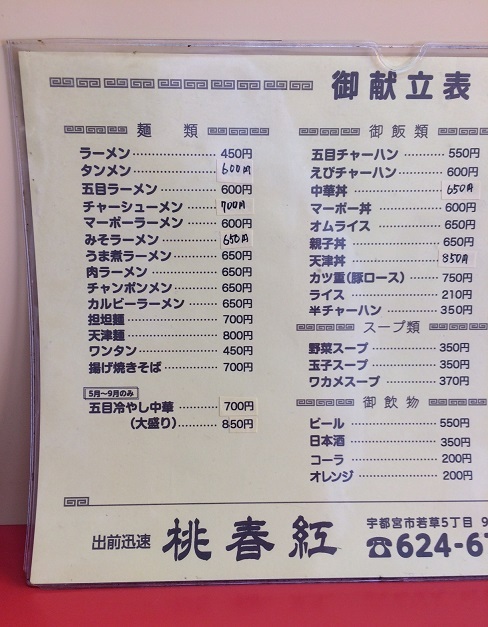 御献立表
麺類
ラーメン 450円
タンメン 600円
五目ラーメン 600円
チャーシューメン 700円
マーボーラーメン 600円
みそラーメン 650円
うま煮ラーメン 650円
肉ラーメン 650円
チャンポンメン 650円
カルビーラーメン 650円
担坦麺 700円
天津麺 800円
ワンタン 450円
揚げ焼きそば 700円
5月〜9月のみ
五目冷やし中華 700円
(大盛り) 850円
御飯類
五目チャーハン 550円
えびチャーハン 600円
中華丼 650円
マーボー丼 600円
オムライス 650円
親子丼 650円
天津丼 850円
カツ重(豚ロース) 750円
ライス 210円
半チャーハン 350円
スープ類
野菜スープ 350円
玉子スープ 350円
ワカメスープ 370円
御飲物
ビール 550円
日本酒 350円
コーラ 200円
オレンジ 200円
出前迅速 桃春紅
宇都宮市若草5丁目 9
☎624-6